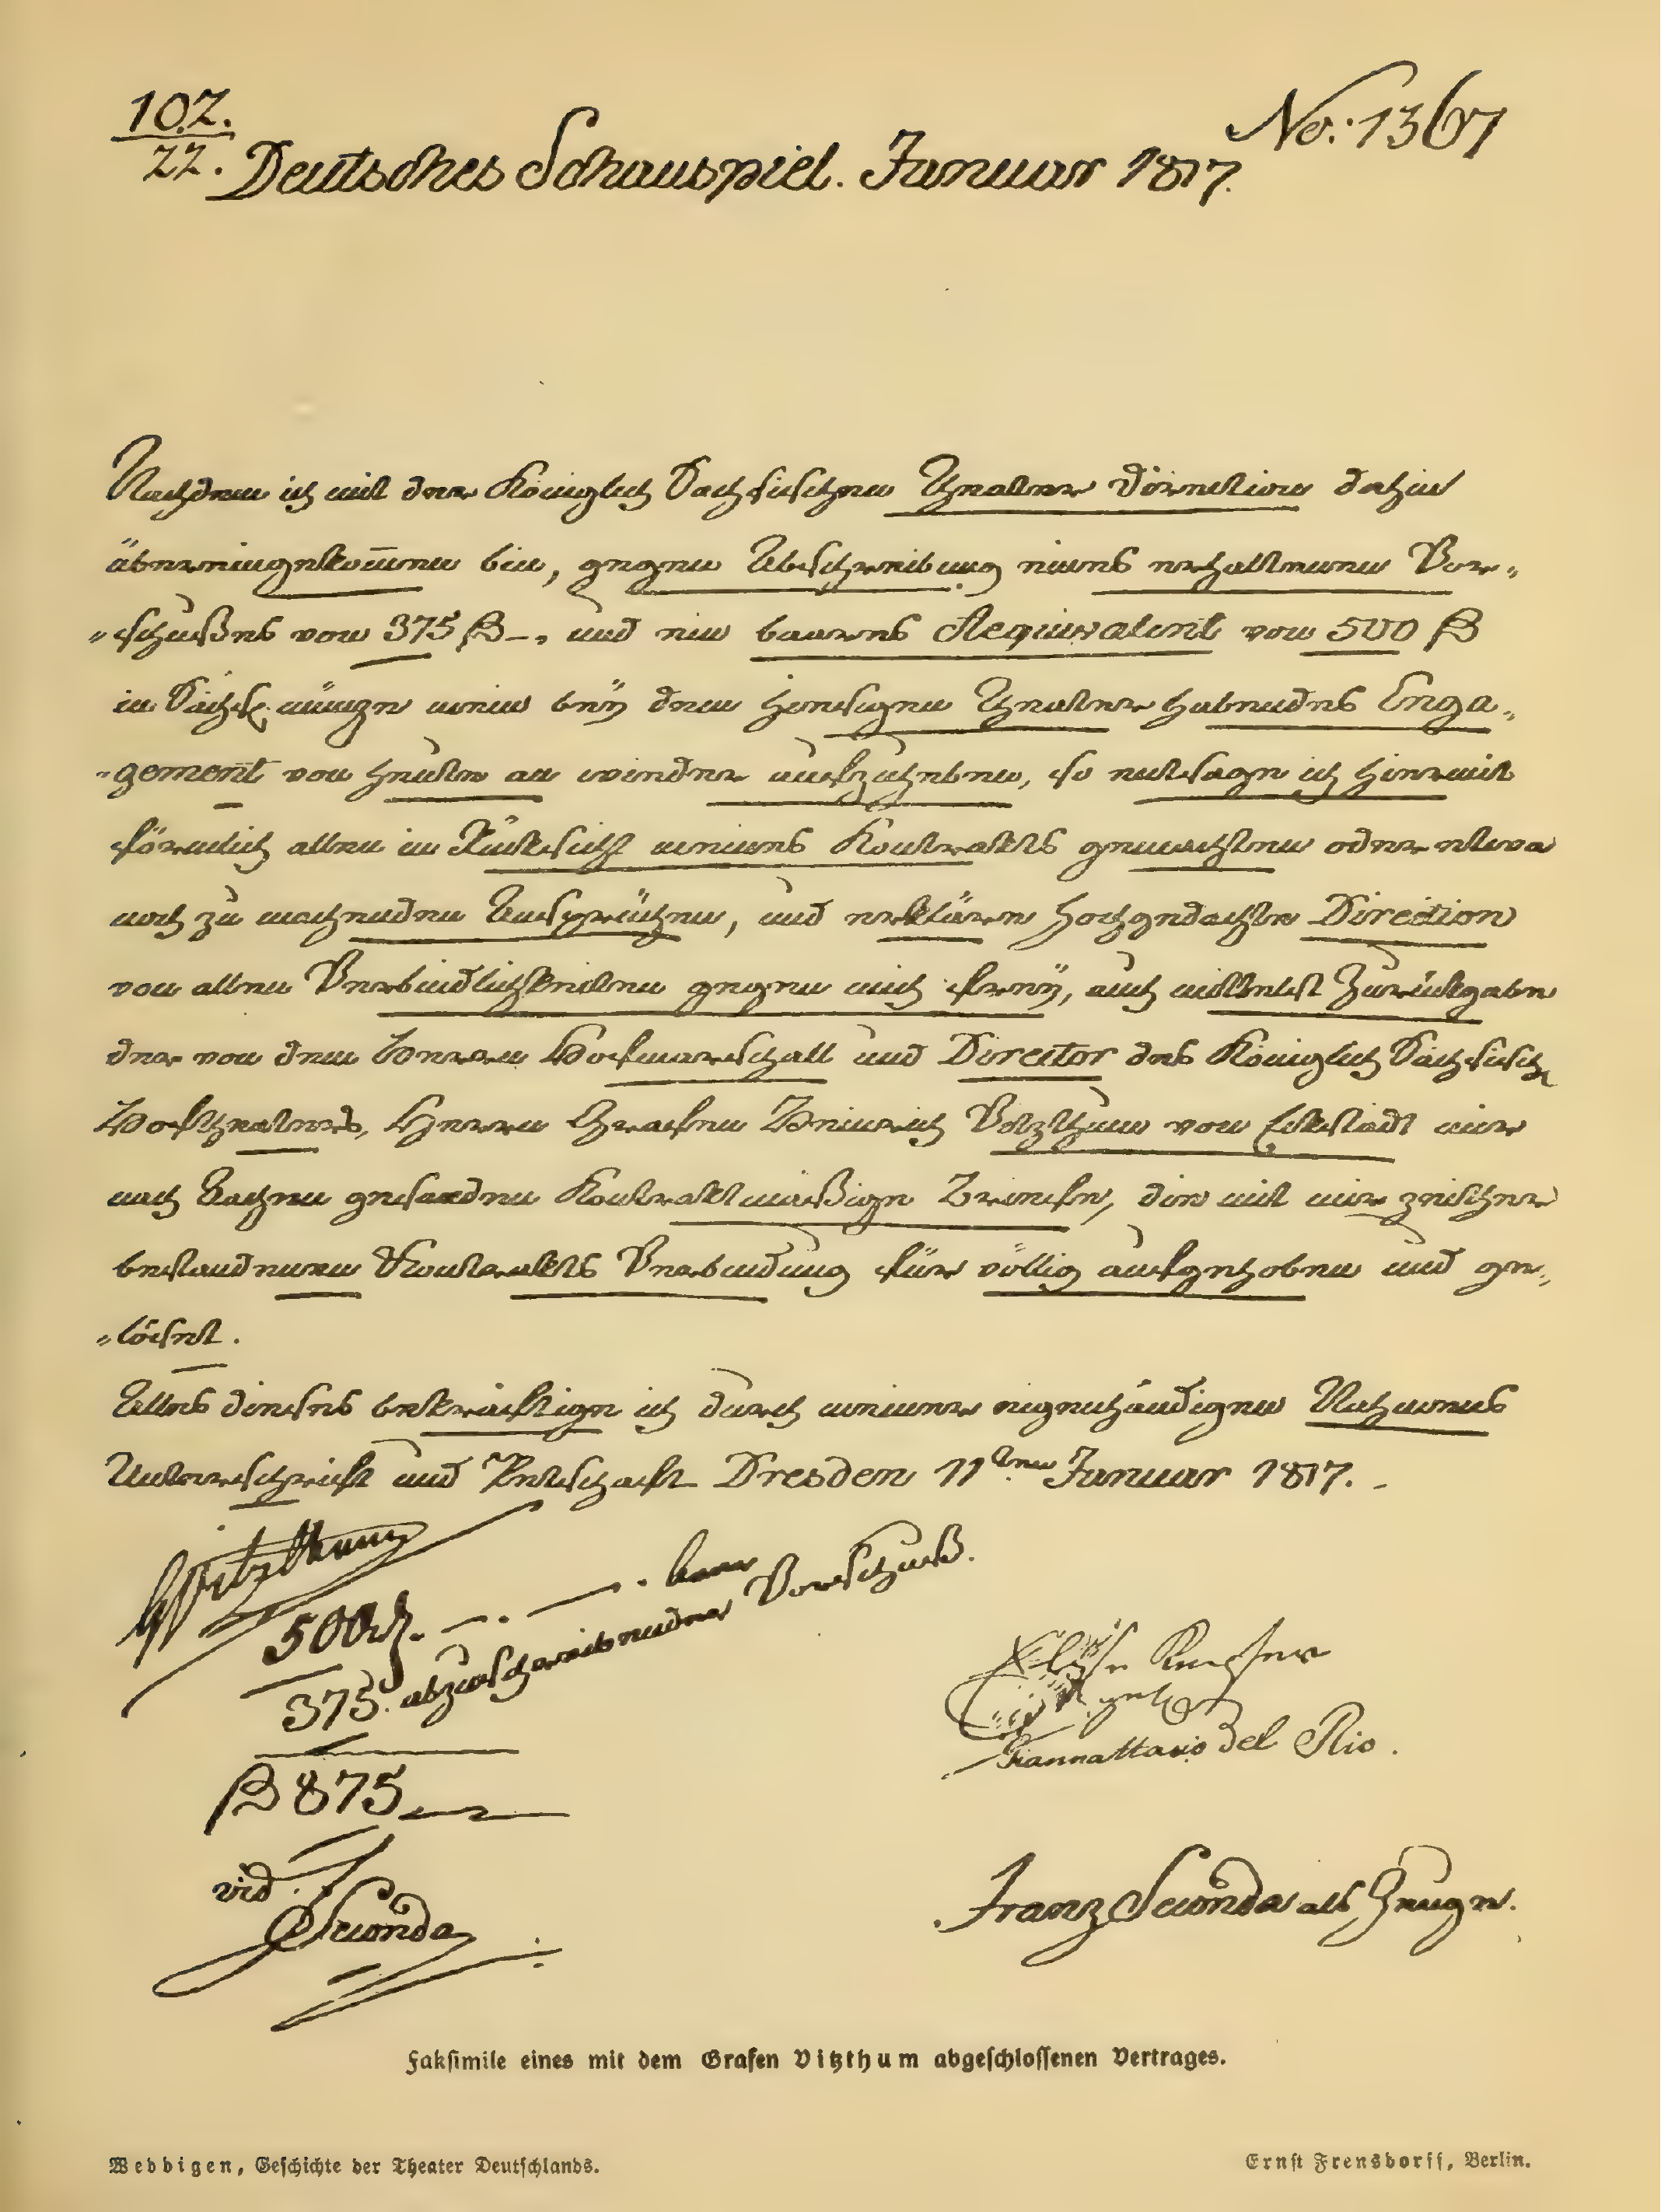 107.
22.
No: 1367
Deutsches Schauspiel. Januar 1817.
Nachdem ich mit der Königlich Sächsischen Theater Direction dahin
übereingekommen bin, gegen Abschreibung eines erhaltenen Vor-
-schußes von 375 β –, und ein baares Aequivalent von 500 β
in Sächs. münze mein beÿ dem hiesigen Theater habendes Enga-
-gement von heute an wieder aufzuheben, so entsage ich hiermit
förmlich allen in Rücksicht meines Kontrakts gemachten oder etwa
noch zu machenden Ansprüchen, und erkläre hochgedachte Direction
von allen Verbindlichkeiten gegen mich freÿ, auch mittelst Zurückgabe
der von dem Herrn Hofmarschall und Director des Königlich Sächsisch
Hoftheaters, Herrn Grafen Heinrich Vitzthum von Eckstädt mir
nach Aachen gesandten Kontraktmäßigen Briefe, die mit mir zeither
bestandenen Kontrakts Verbindung für völlig aufgehoben und ge-
-löset.
Alles dieses bekräftige ich durch meiner eigenhändigen Nahmens
Unterschrift und Petschaft Dresden 11ten Januar 1817. –
GVitzthum
500 rh. – . — . baar
375. abzuschreibender Vorschuß.
β 875
vid.
Seconda
Giannattasio del Rio.
Franz Seconda als Zeuge.
Faksimile eines mit dem Grafen Vitzthum abgeschlossenen Vertrages.
Weddigen, Geschichte der Theater Deutschlands.
Ernst Frensdorff, Berlin.